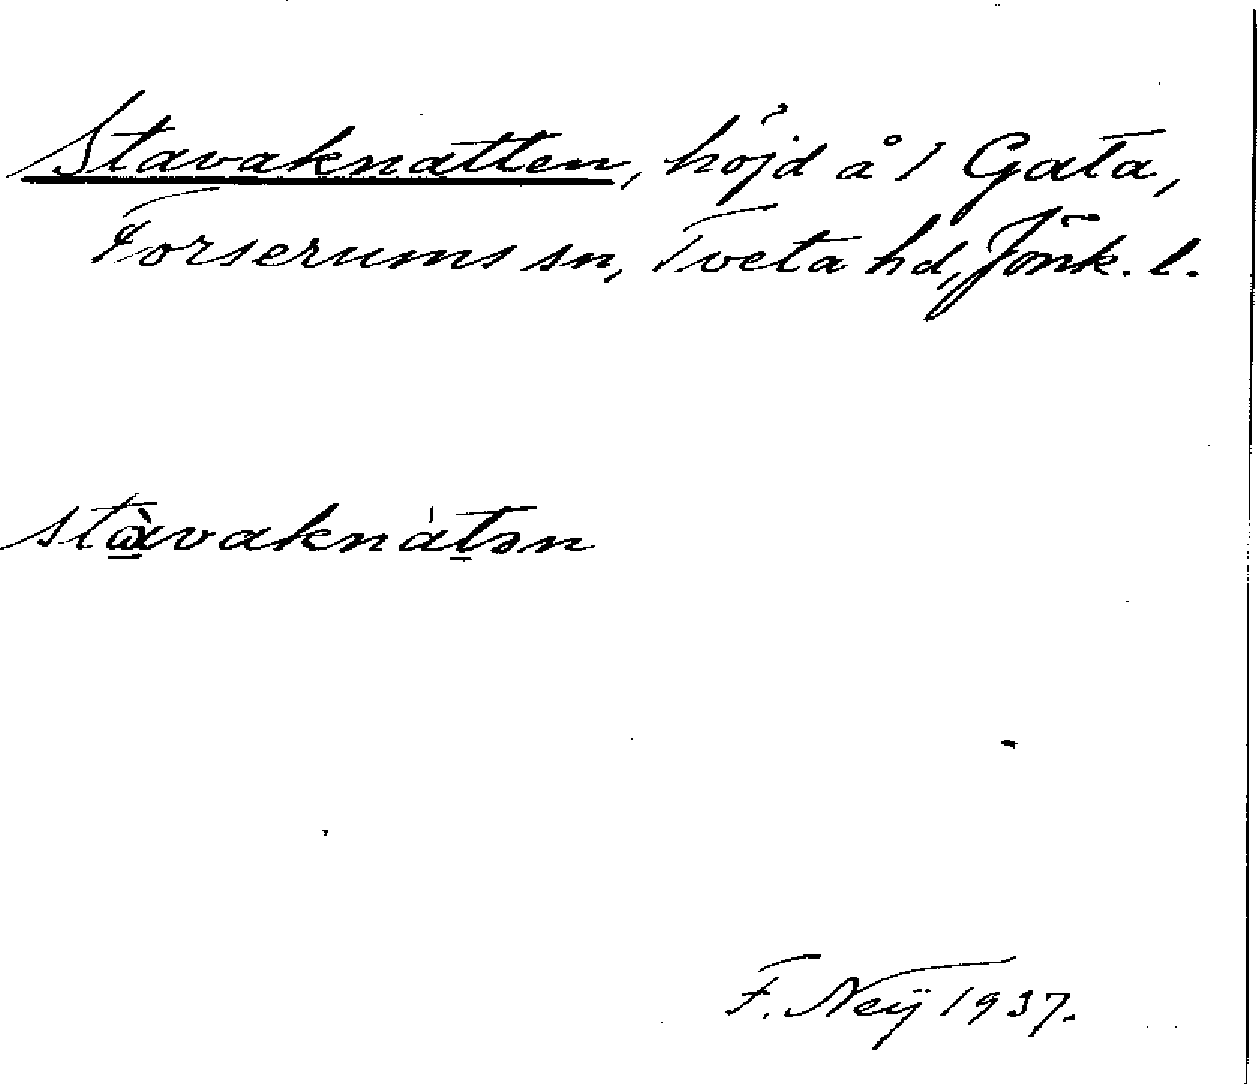 Stavaknatten, höjd å 1 Gata,
Forserums sn, Tveta hd, Jönk. l.
stàvaknátən
F. Neÿ 1937.